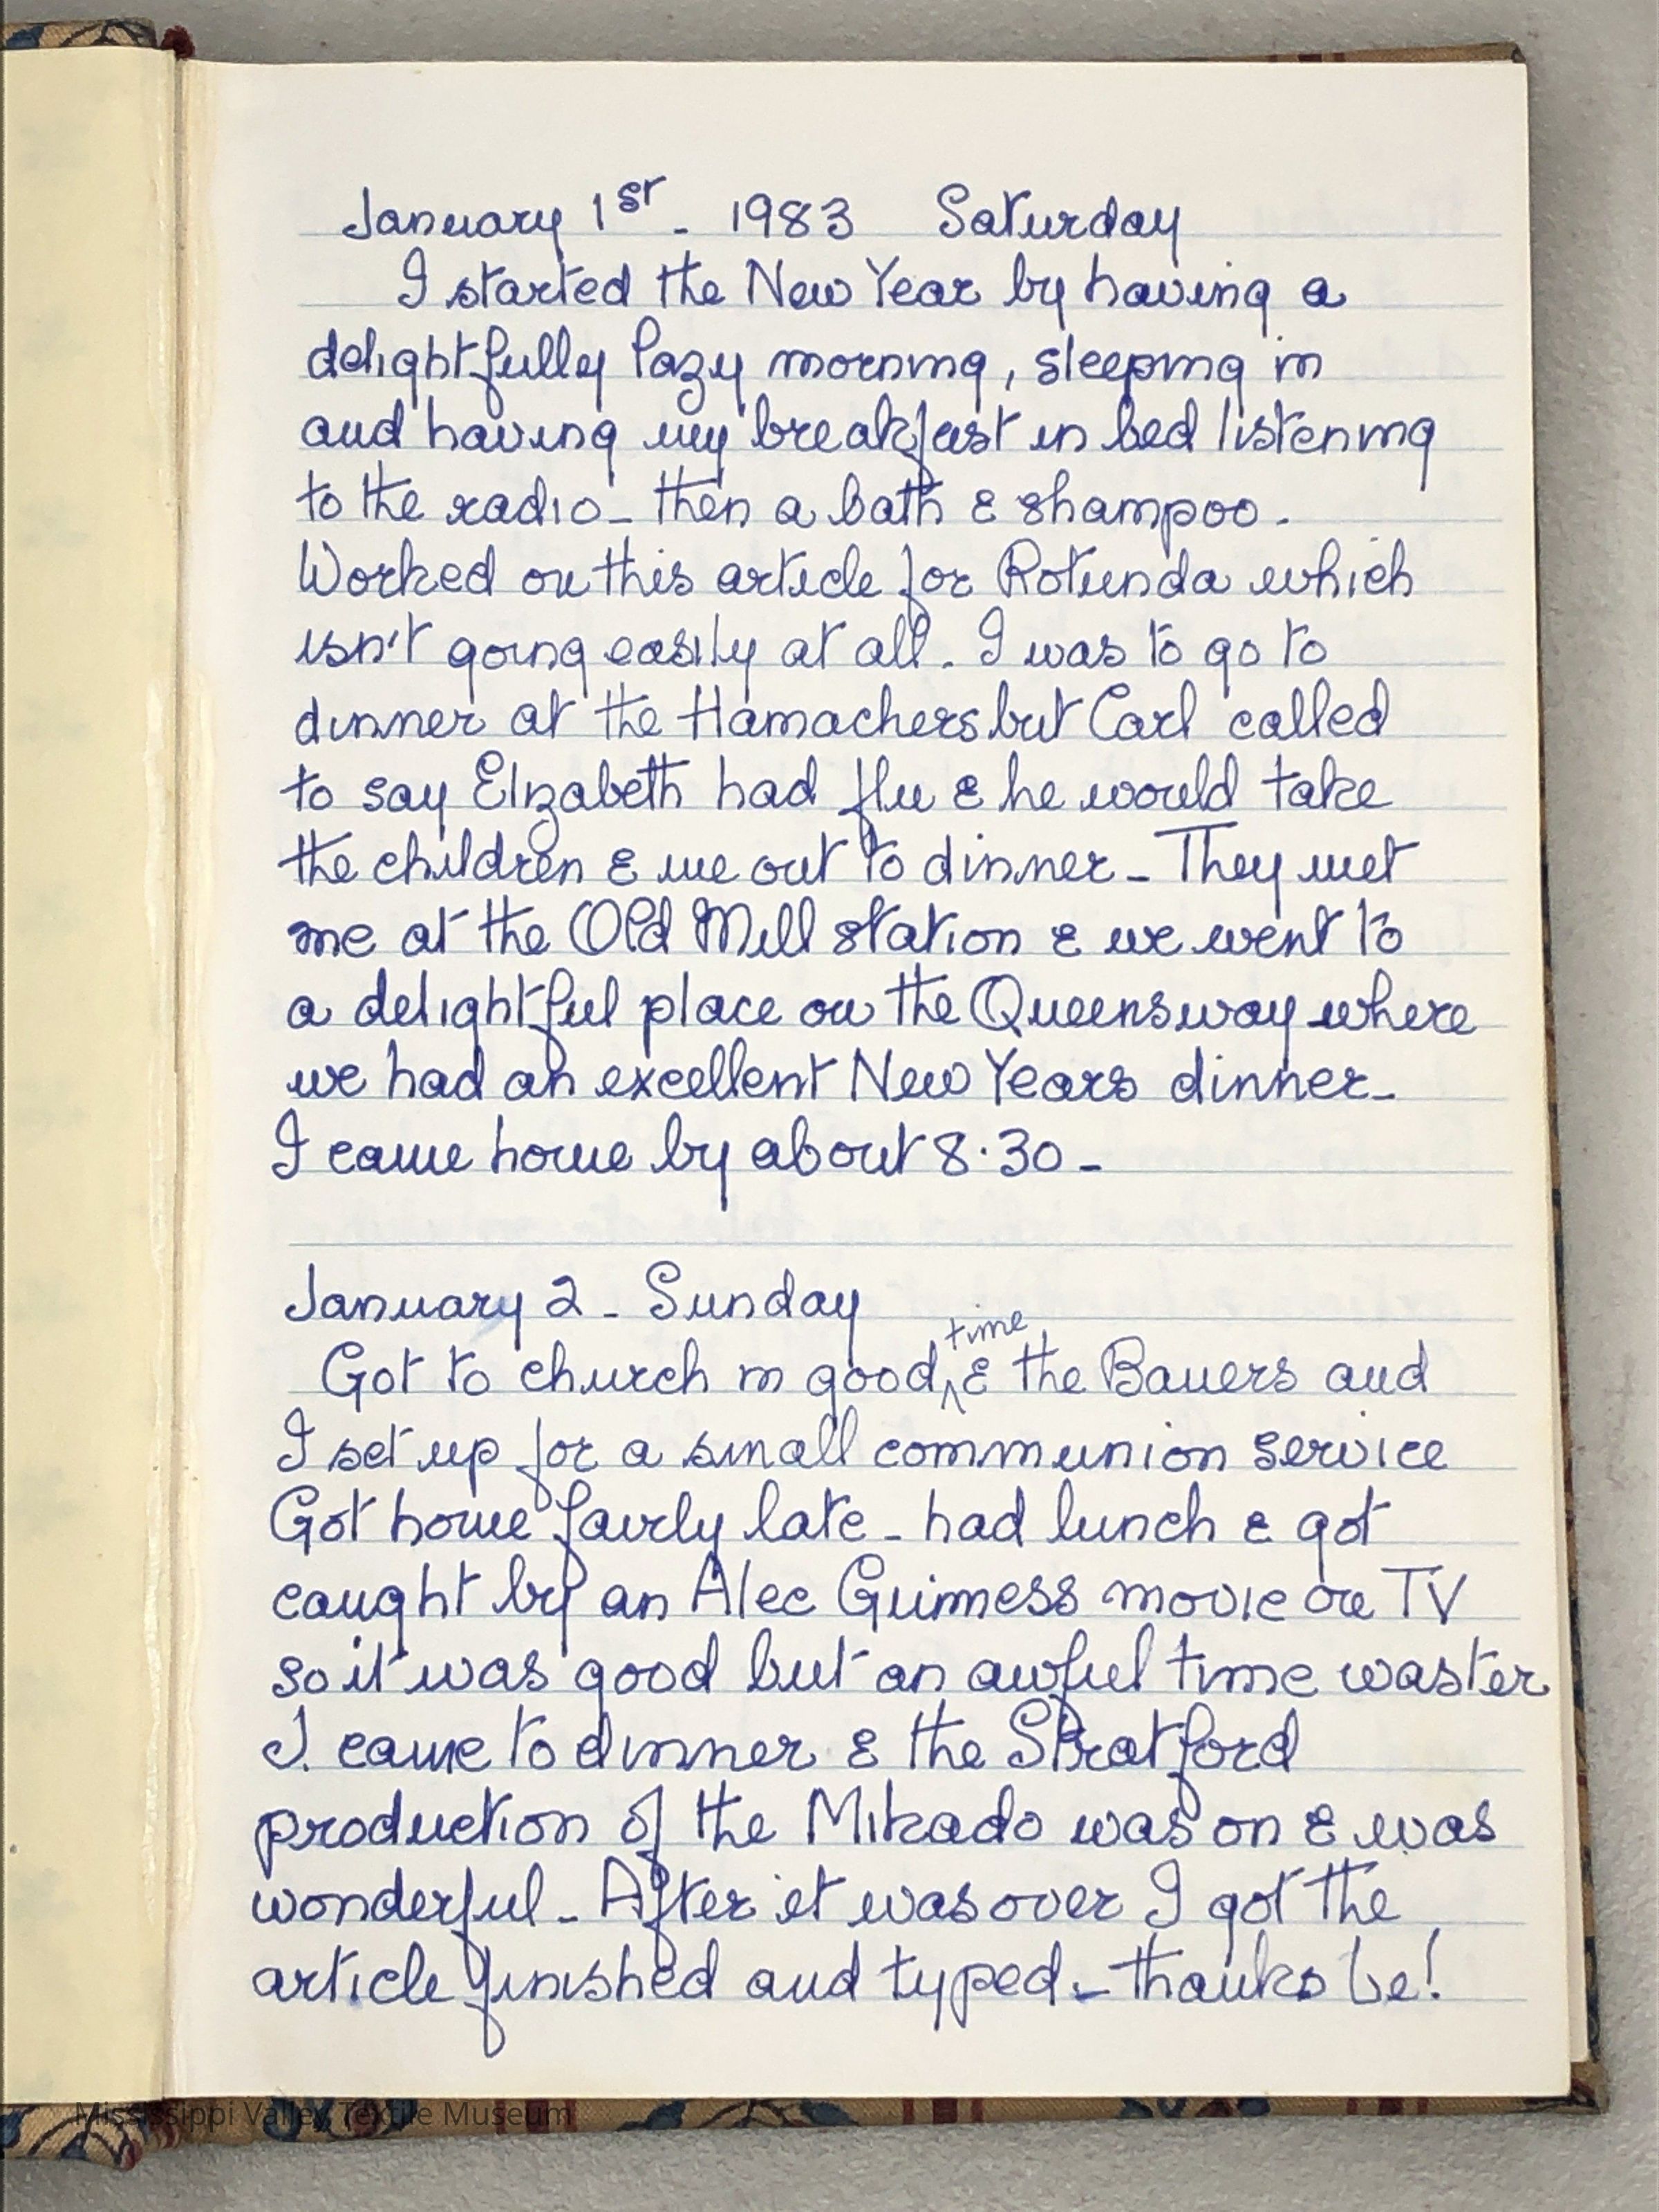 January 1st - 1983 Saturday
I started the New Year by having a
delightfully lazy morning, sleeping in
and having my breakfast in bed listening
to the radio - then a bath & shampoo -
Worked on this article for Rotunda which
isn't going easily at all. I was to go to
dinner at the Hamachers but Carl called
to say Elizabeth had flu & he would take
the children & me out to dinner - They met
me at the Old Mill station & we went to
a delightful place on the Queensway where
we had an excellent New Years dinner -
I came home by about 8.30 -
January 2 - Sunday
Got to church in good time & the Bauers and
I set up for a small communion service
Got home fairly late - had lunch & got
caught by an Alec Guinness movie on TV
so it was good but an awful time waster
J. came to dinner & the Stratford
production of the Mikado was on & was
wonderful - After it was over I got the
article finished and typed - thanks be!
Mississippi Valley Textile Museum